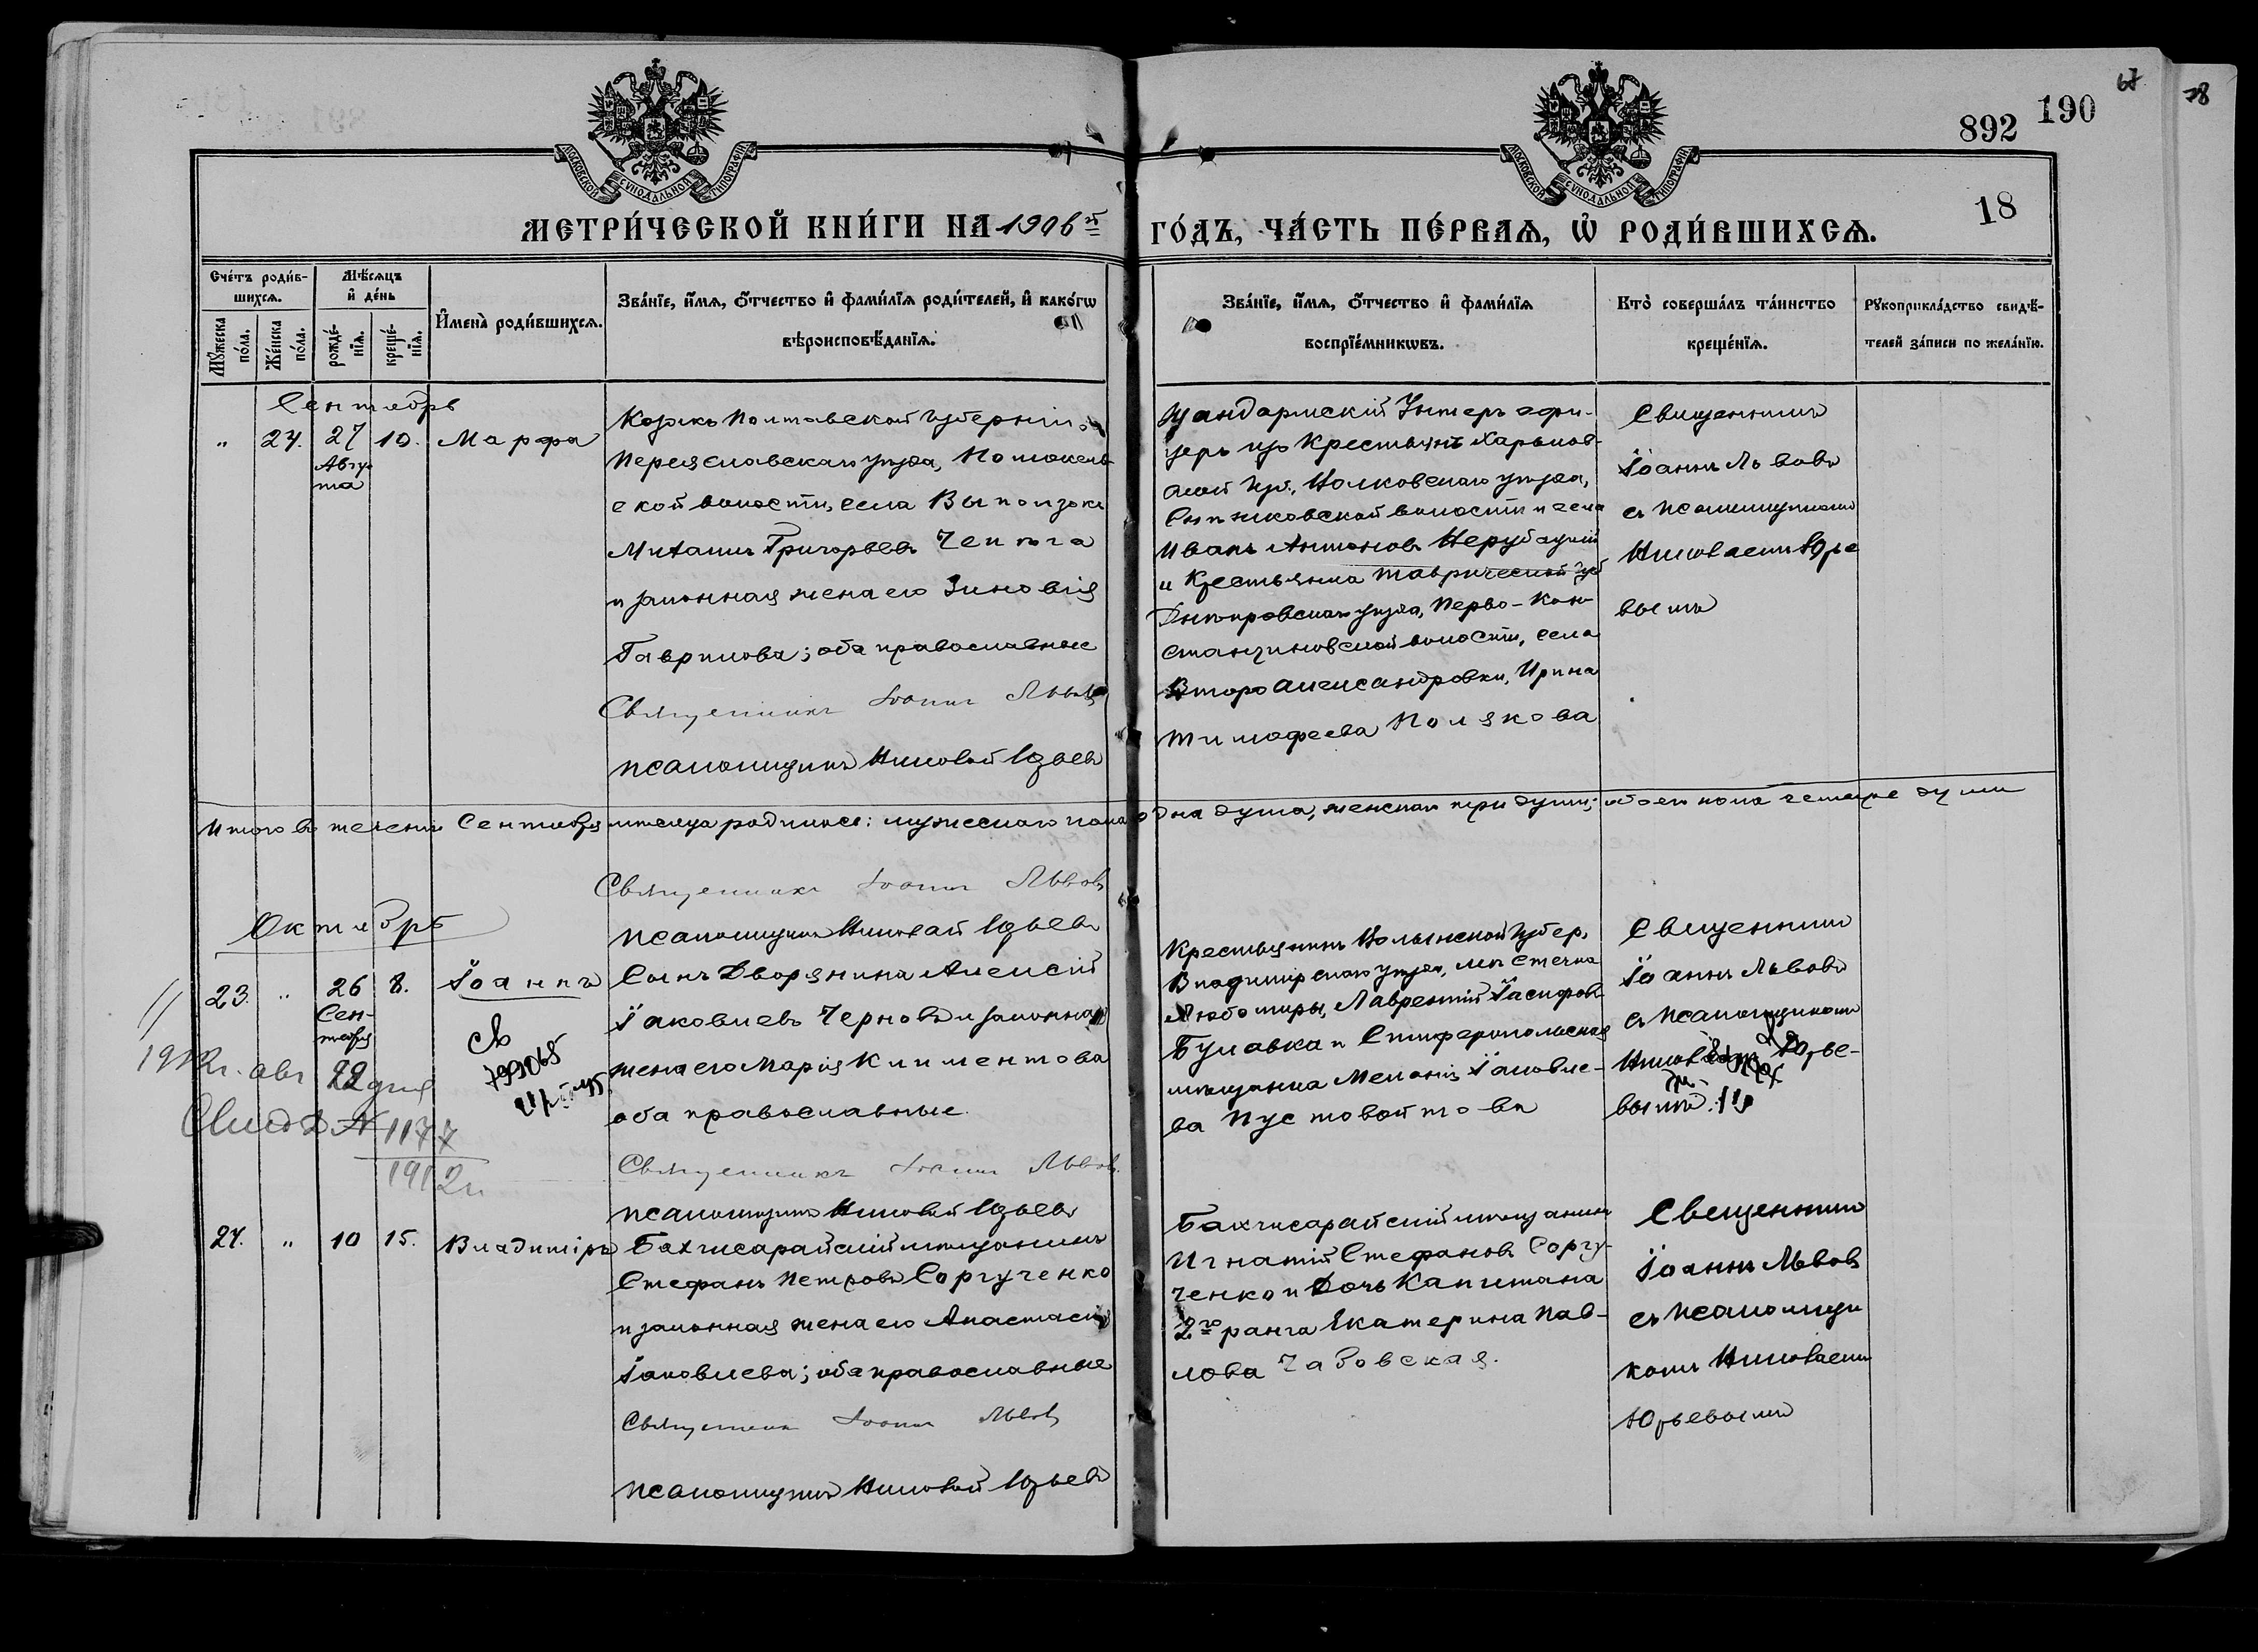 67
78
892
190
18
МОСКОВСКОЙ СУНОДАЛЬНОЙ ТИПОГРАФІИ
МОСКОВСКОЙ СУНОДАЛЬНОЙ ТИПОГРАФІИ
МЕТРИ́ЧЕСКОЙ КНИ́ГИ НА 1906 й
ГО́ДЪ, ЧА́СТЬ ПЕ́РВАѦ, Ѡ҆ РОДИ́ВШИХСѦ.
Сче́тъ роди́в-
шихсѧ.
Мꙋ́жеска
по́ла.
Же́нска
по́ла.
Мѣ́сѧцъ
и҆ де́нь
рожде́-
нїѧ.
креще́-
нїѧ.
И҆мена̀ роди́вшихсѧ.
Зва́нїе, и҆́мѧ, ѻ҆́тчество и҆ фами́лїѧ роди́телей, и҆ како́гѡ
вѣроисповѣ́данїѧ.
Зва́нїе, и҆́мѧ, ѻ҆́тчество и҆ фами́лїѧ
воспрїе́мникѡвъ.
Кто̀ соверша́лъ та́инство
креще́нїѧ.
Рꙋкоприкла́дство свидѣ́-
телей за́писи по жела́нїю.
Сентябрь
" 24. 27 10. Марфа
Авгу-
ста
Козакъ Полтавской губерніи,
Переяславскаго уѣзда,
ской волости, села Выползокъ
Михаилъ Григорьевъ Чепига
и законная жена его Зиновія
Гаврилова; оба православные
Священникъ Іоаннъ Львовъ
псаломщикъ Николай Юрьевъ
Жандармскій Унтеръ офи-
церъ изъ Крестьянъ Харьков-
ской губ., Волковскаго уѣзда,
волости и села
Иванъ Антоновъ Нерубацкій
и Крестьянка Таврической губ
Днѣпровскаго уѣзда, Перво-Кон-
стантиновской волости, села
Второ Александровки, Ирина
Тимофеева Полякова
Священникъ
Іоаннъ Львовъ
съ псаломщикомъ
Николаемъ Юрье
вымъ
Итого въ теченіи Сентября мѣсяца родилось: мужескаго пола одна душа, женскаго три души; обоего пола четыре души
Священникъ Іоаннъ Львовъ
псаломщикъ Николай Юрьевъ
Октябрь
23. " 26 8. Іоаннъ
Сен-
тября
Сынъ Дворянина Алексій
Іаковлевъ Черновъ и законная
жена его Марія Климентова
оба православные.
Священникъ Іоаннъ Львовъ.
псаломщикъ Николай Юрьевъ
1912 г. авг 22 дня
Свид № 1177
1912 г.
799065
Крестьянинъ Волынской губер,
Владимірскаго уѣзда, мѣстечка
Любомиры, Лаврентій
Булавка и Симферопольская
мѣщанка Меланія Іаковле-
ва Пустовойтова
Священникъ
Іоаннъ Львовъ
съ псаломщикомъ
Николаемъ Юрье-
вымъ
24. " 10 15. Владиміръ
Бахчисарайскій мѣщанинъ
Стефанъ Петровъ Соргученко
и законная жена его Анастасія
Іаковлева; оба православные
Священникъ Іоаннъ Львовъ
псаломщикъ Николай Юрьевъ
Бахчисарайскій мѣщанинъ
Игнатій Стефановъ Соргу-
ченко и Дочь Капитана
2го ранга Екатерина Пав-
лова Чабовская.
Священникъ
Іоаннъ Львовъ
съ псаломщи
комъ Николаемъ
Юрьевымъ